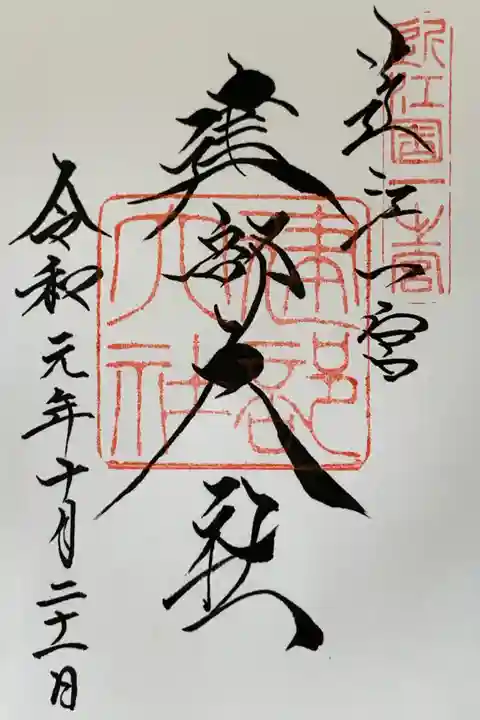 近江国一之宮
近江一宮
建部大社
建部大社
令和元年十月二十一日